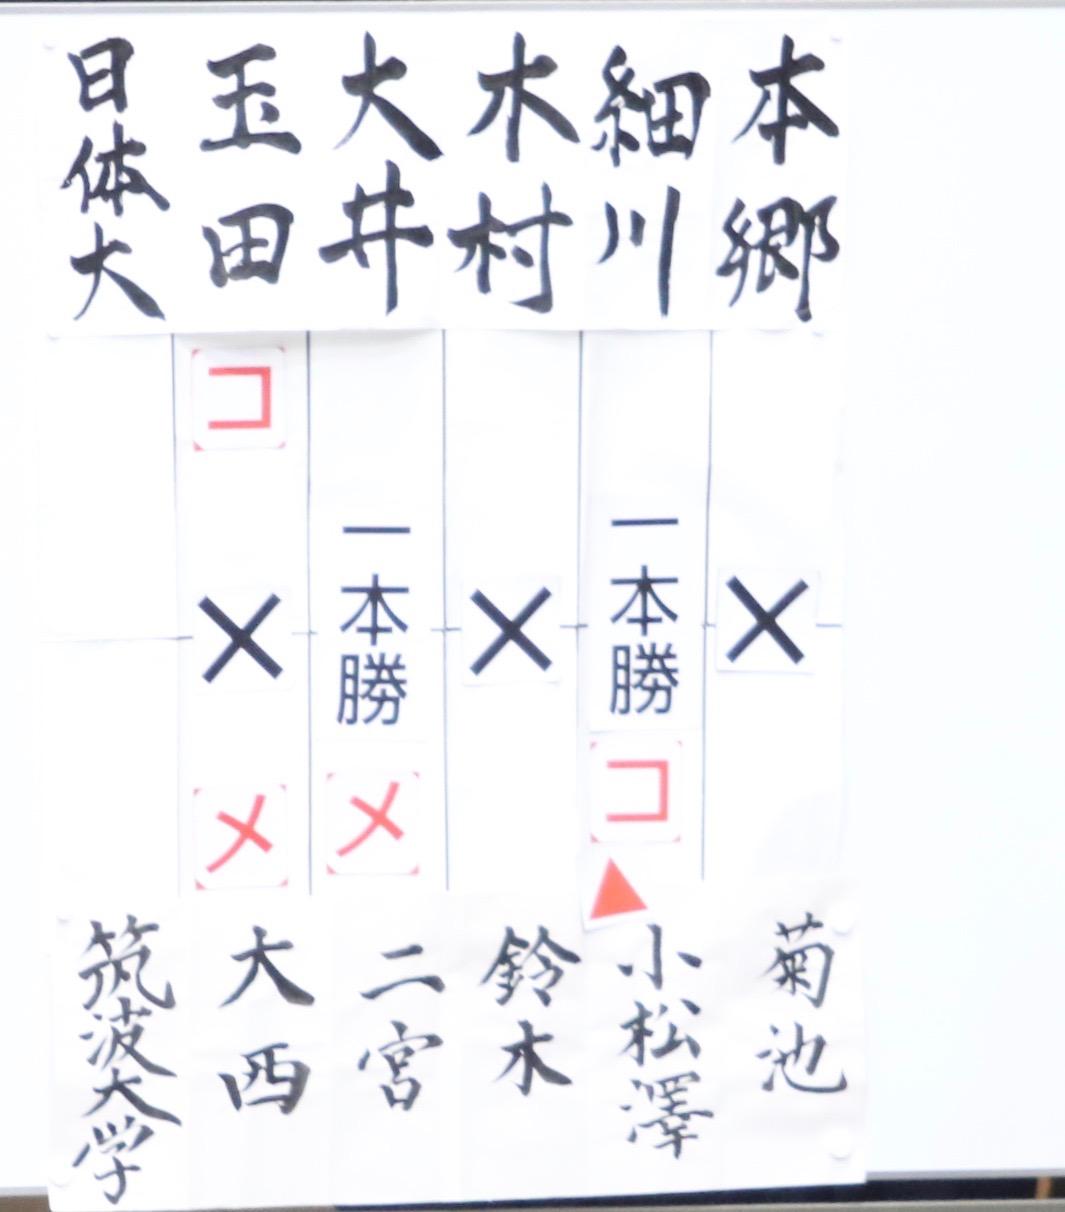 日体大
玉田
大井
木村
細川
本郷
コ
一本勝
一本勝
×
×
×
メ
メ
コ
筑波大学
大西
二宮
鈴木
小松澤
菊池